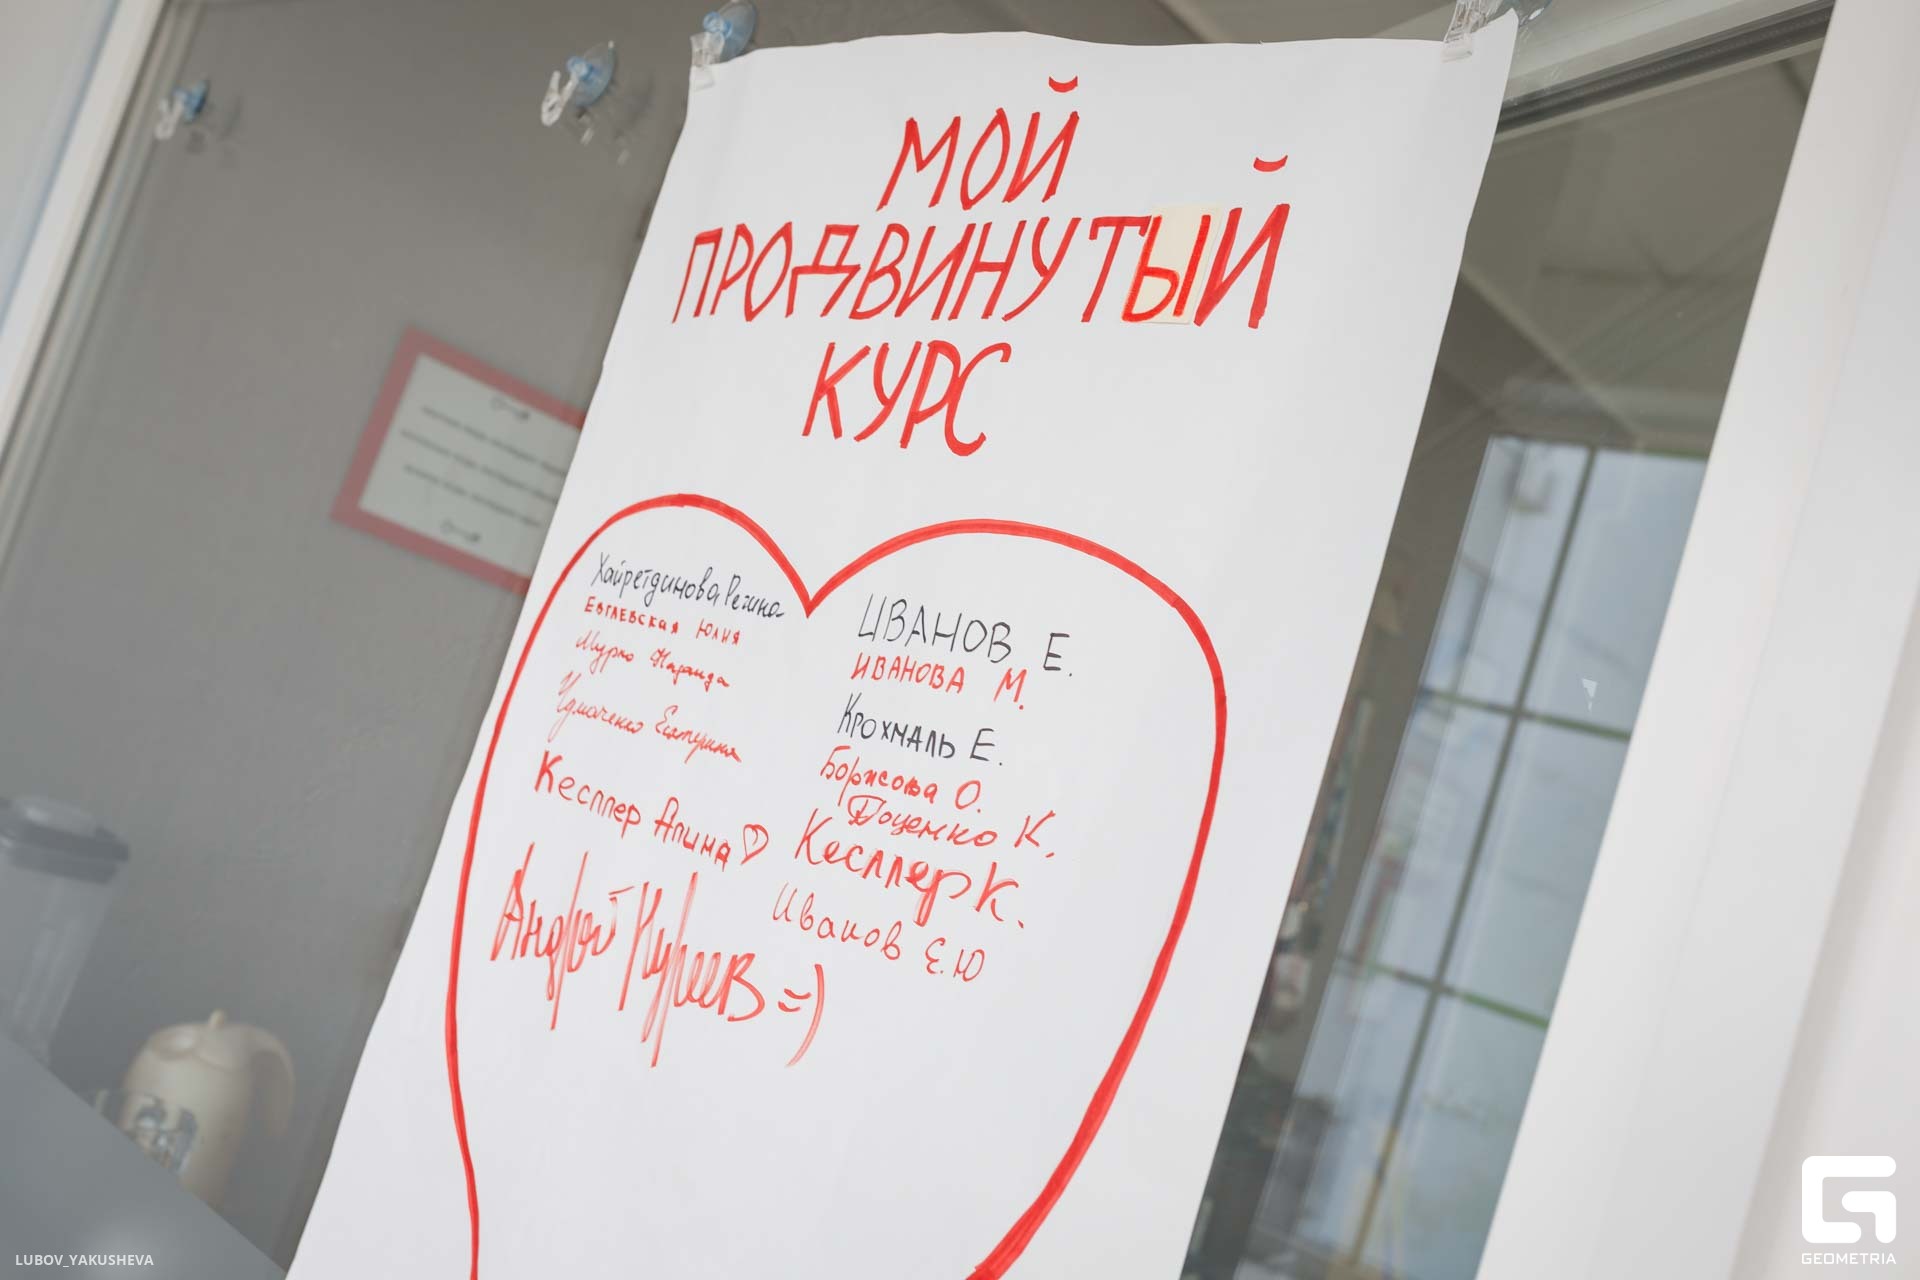 МОЙ
ПРОДВИНУТЫЙ
КУРС
Хайретдинова Регина
Евглевская Юлия
Мурко Надежда
Чумаченко Екатерина
Кесплер Алина
Андрей Куреев =)
ИВАНОВ Е.
ИВАНОВА М.
Крохмаль Е.
О.
Доценко К.
Кесплер К.
Иванов Е.Ю
LUBOV_YAKUSHEVA
GEOMETRIA